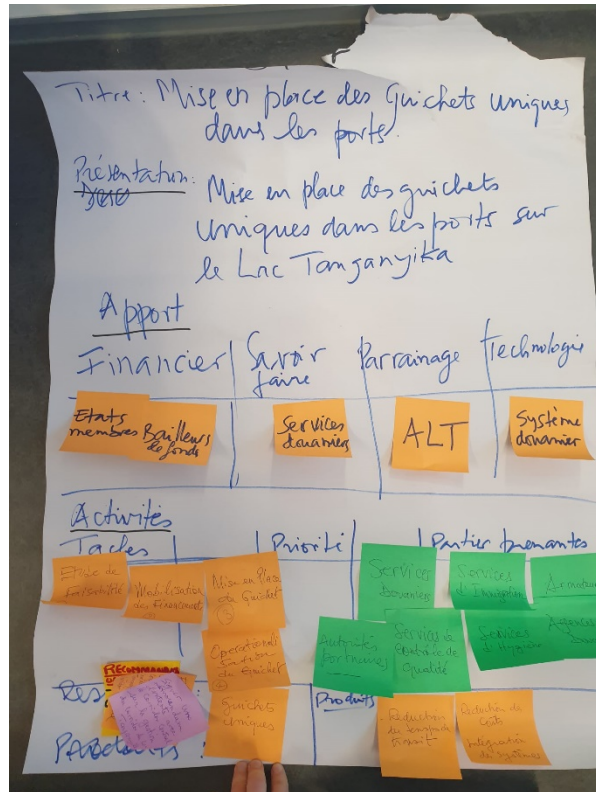 Titre: Mise en place des Guichets uniques
dans les ports.
Présentation:
Mise en place des guichets
uniques dans les ports sur
le Lac Tanganyika
Apport
Financier
Savoir
faire
Parrainage
Technologie
Etats
membres
Bailleurs
de fonds
Services
douaniers
ALT
Système
douanier
Activités
Taches
Priorité
Partier prenantes
Etude de
faisabilité
Mobilisation
des Financement
Mise en Place
du Guichet
Operationali
du Guichet
Services
douaniers
Services
d'Immigration
Autorités
portuaires
Services de
contrôle de
qualité
Services
d'Hygiène
Res
RECOMMAND
Guichets
Uniques
Produits
Reduction
du temps de
transit
Reduction de
coûts
Integration
de systèmes